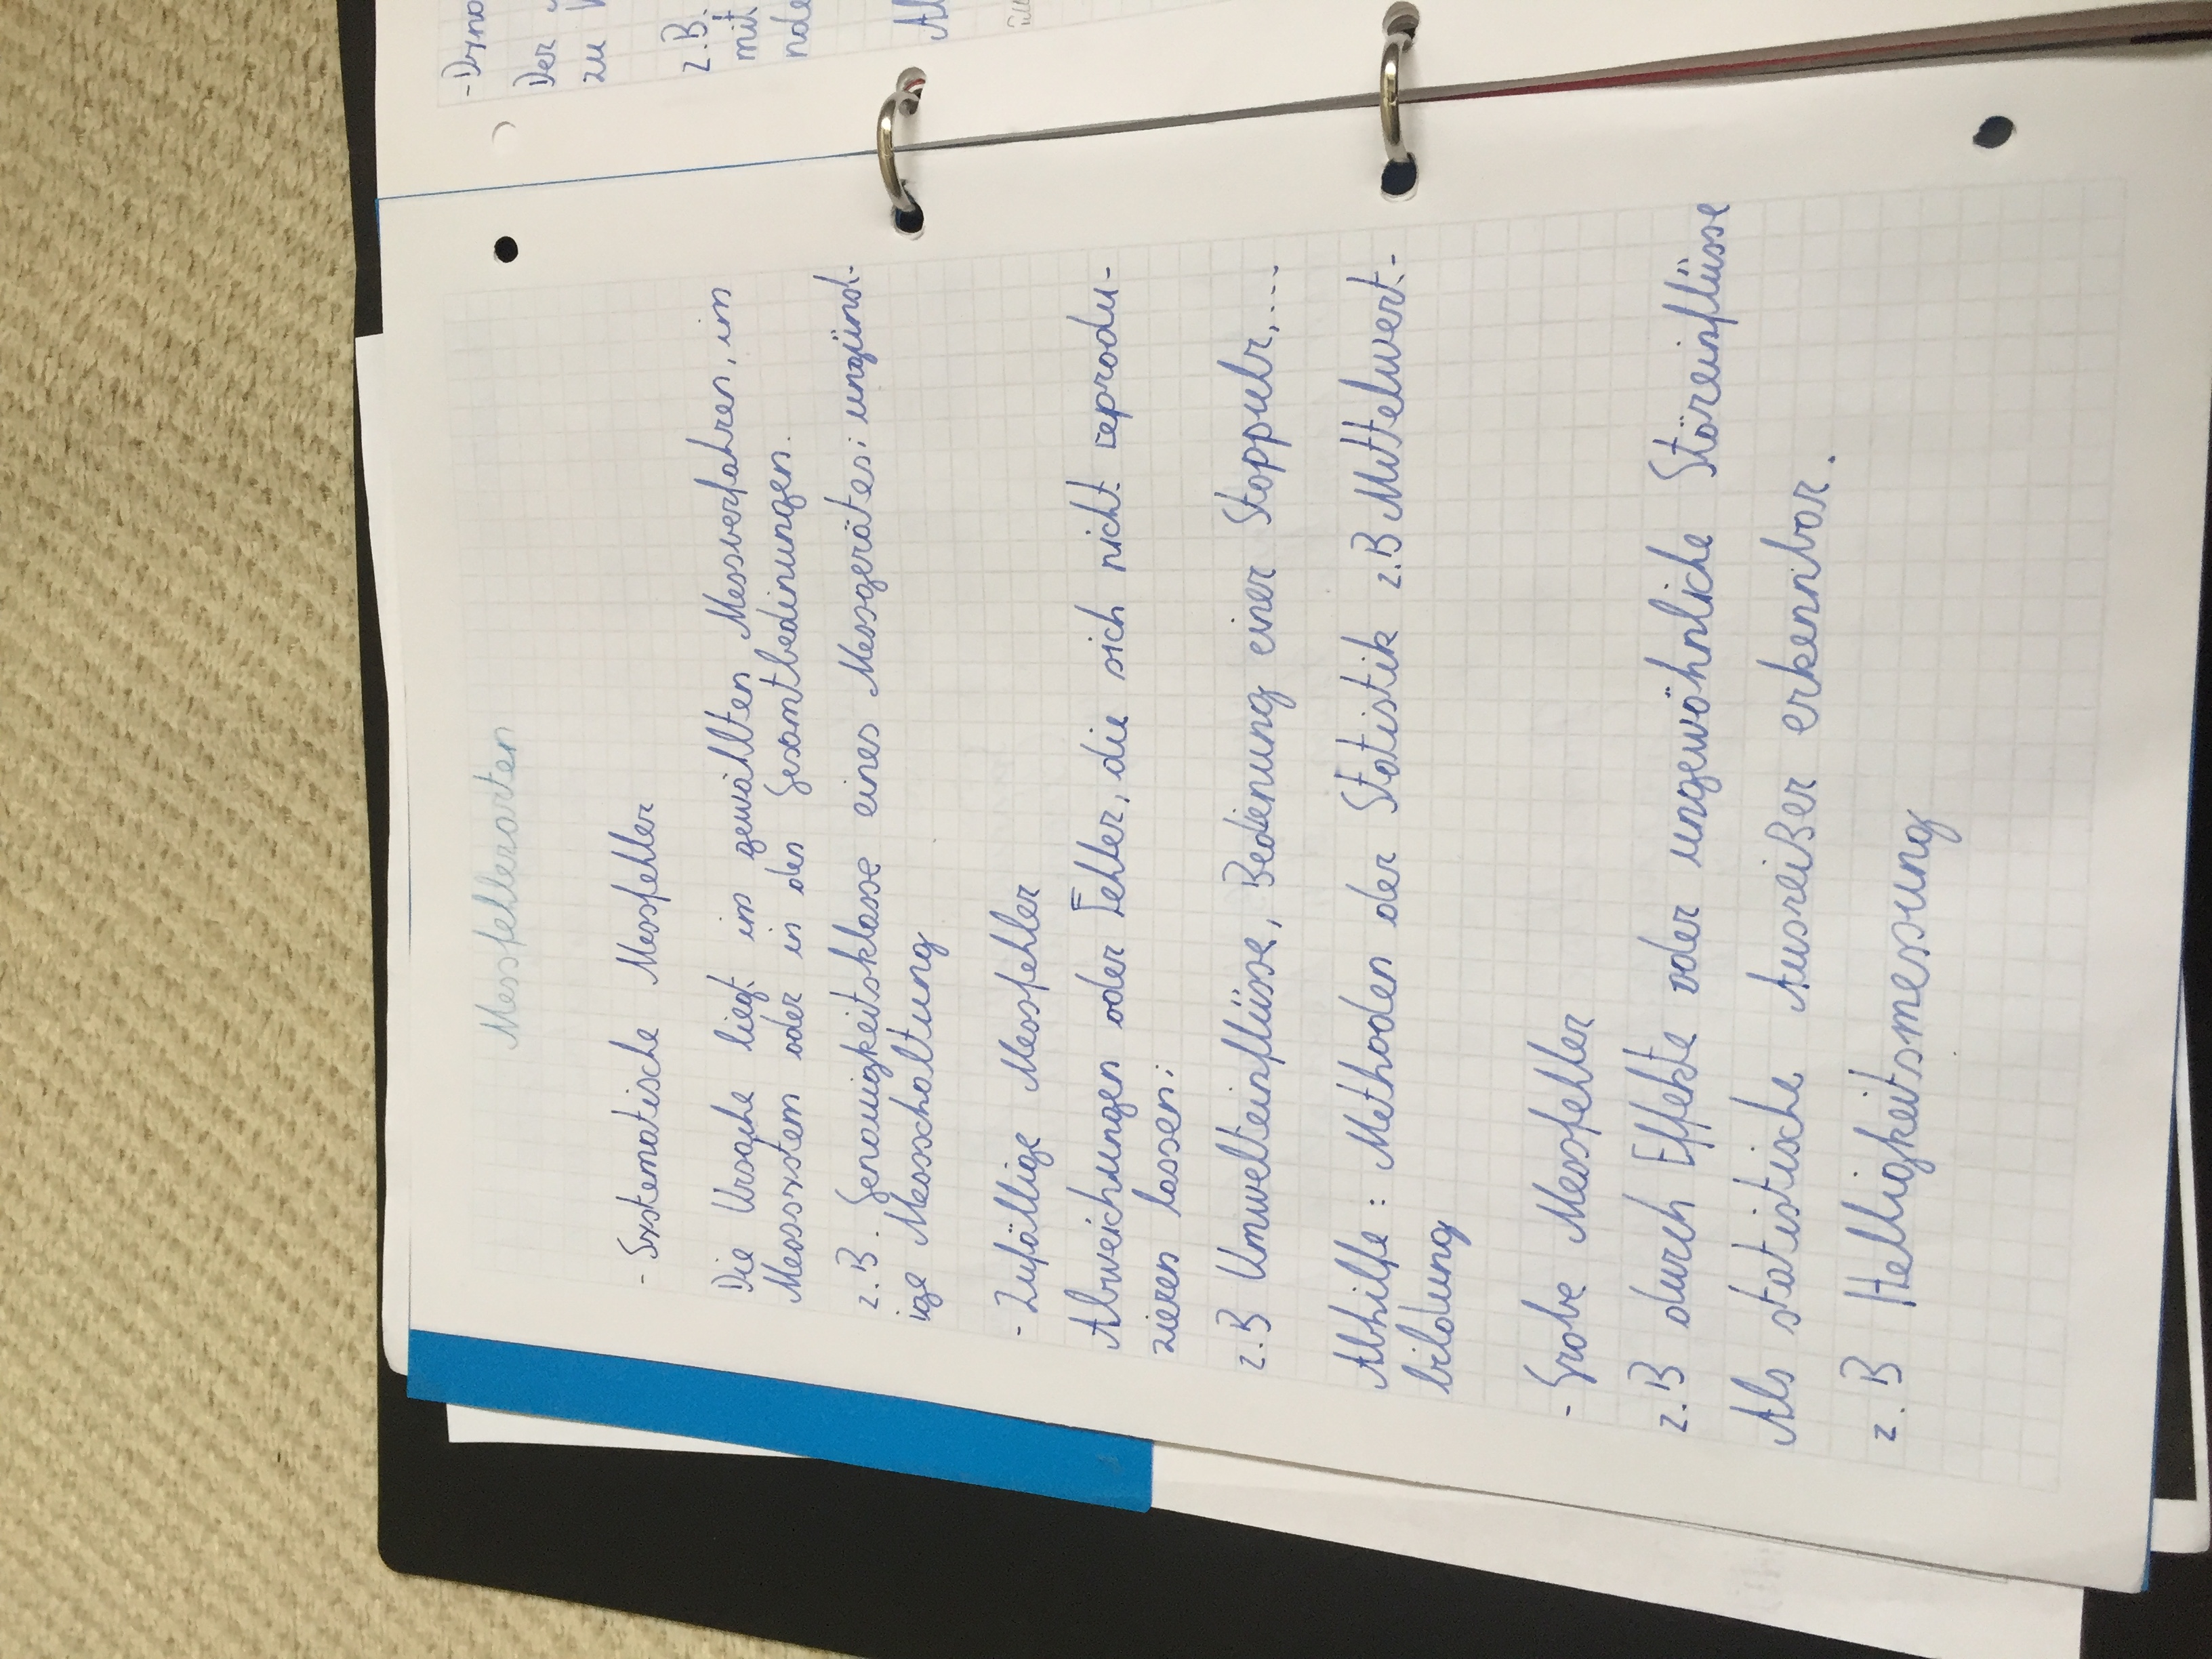 Messfehlerarten
- Systematische Messfehler
Die Ursache liegt im gewählten Messverfahren, im
Messsystem oder in den Gesamtbedinungen.
z.B. Genauigkeitsklasse eines Messgerätes; ungünst-
ige Messschaltung
- Zufällige Messfehler
Abweichungen oder Fehler, die sich nicht reprodu-
zieren lassen;
z.B Umwelteinflüsse, Bedienung einer Stoppuhr,...
Abhilfe: Methoden der Statistik z.B Mittelwert-
bildung
- Grobe Messfehler
z.B durch Effekte oder ungewöhnliche Störeinflüsse
Als statistische Ausreißer erkennbar.
z.B Helligkeitsmessung
Der
zu
z.B.
mit